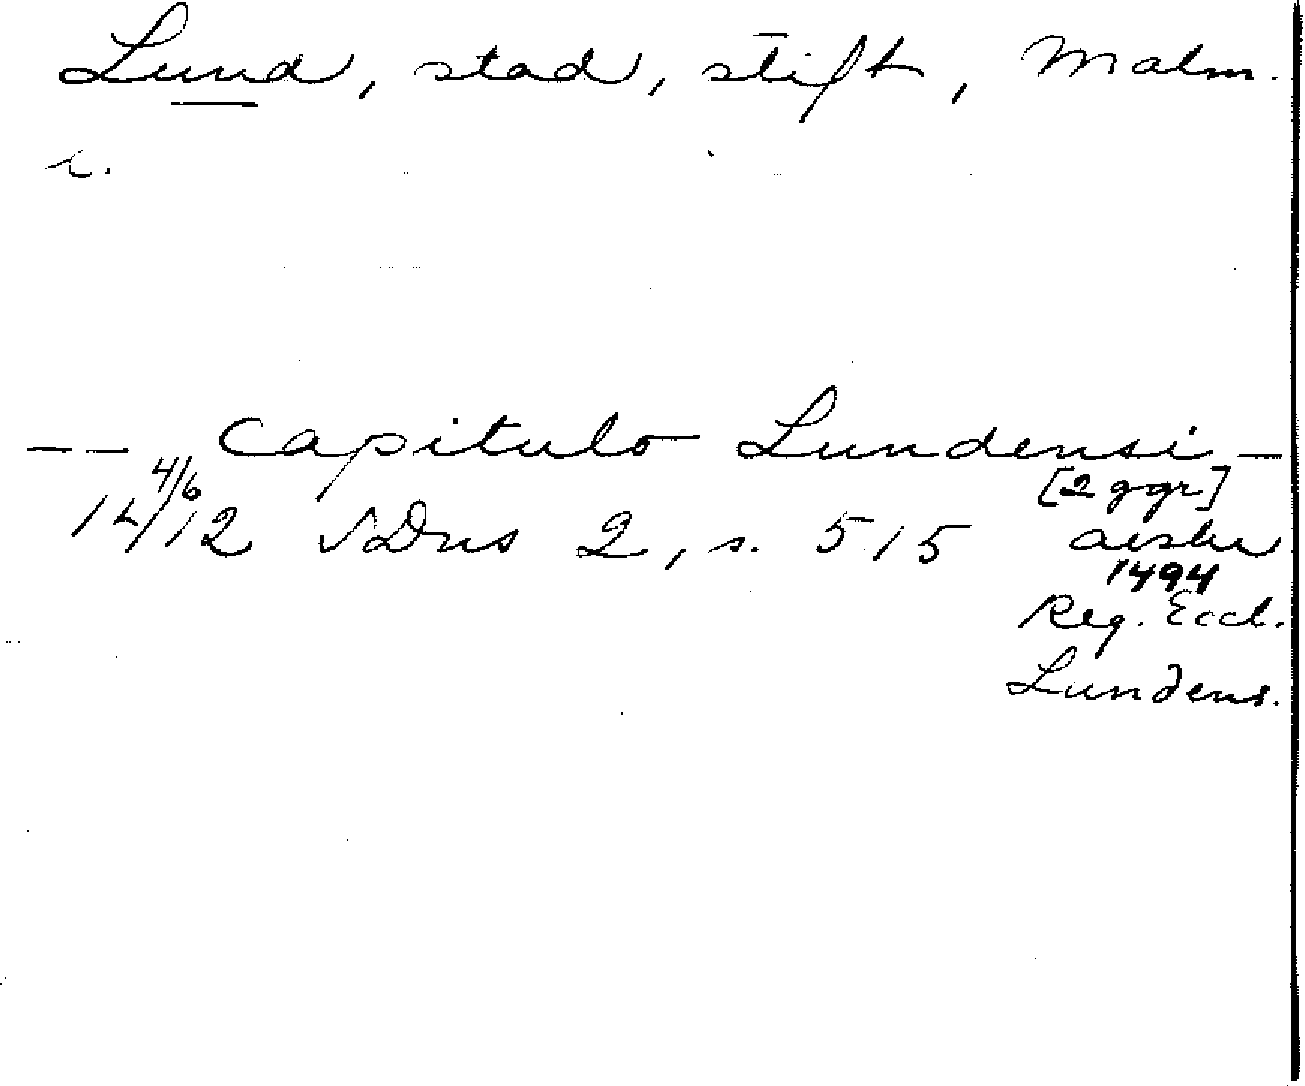 Lund, stad, stift, Malm.
-- Capitulo Lundensi -
14 4/6 12 SDns 2, s. 515 [2 ggr]
avskr
1494
Reg. Eccl.
Lundens.